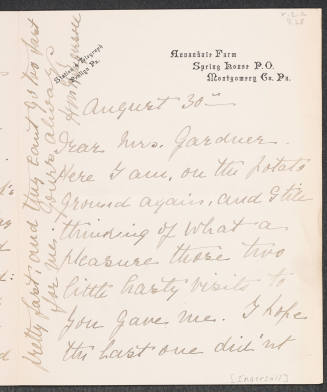 Station & Telegraph
Penllyn Pa.
Annandale Farm
Spring House P.O.
Montgomery Co. Pa.
August 30th
Dear Mrs. Gardner.
Here I am, on the potato
ground again, and still
thinking of what a
pleasure those two
little hasty visits to
you gave me. I hope
the last one did'nt
pretty fast; and they can't go too fast
for me. Yours always
[Ingersoll]